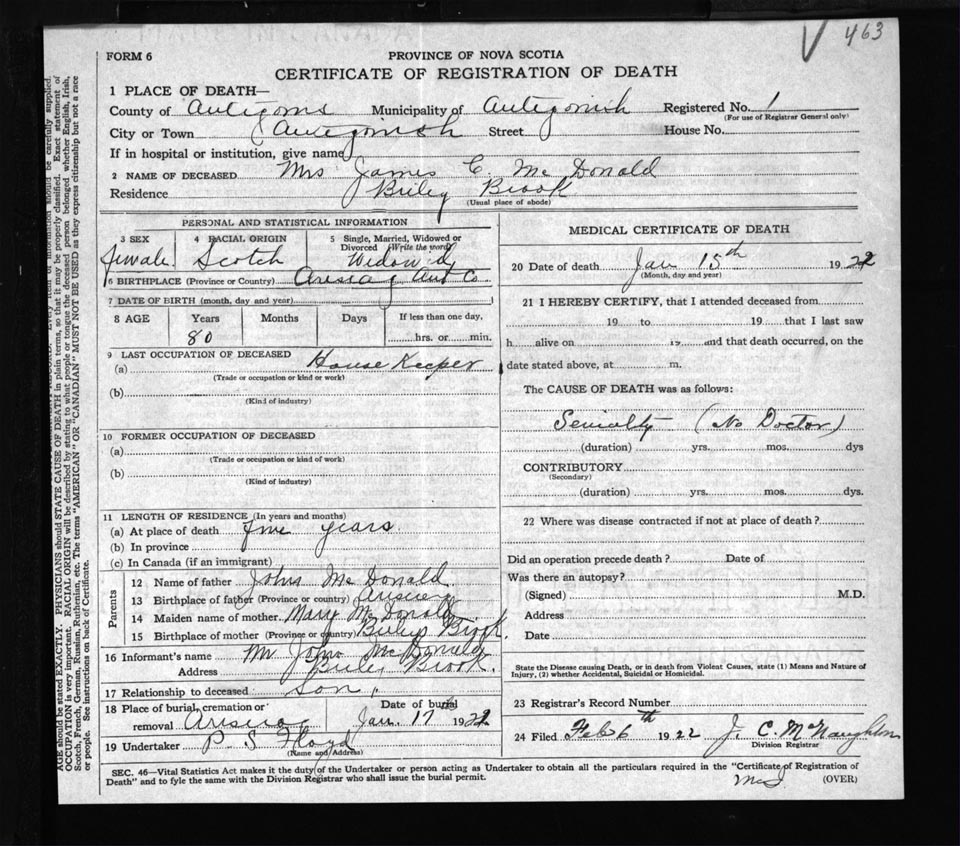 463
FORM 6
PROVINCE OF NOVA SCOTIA
CERTIFICATE OF REGISTRATION OF DEATH
1 PLACE OF DEATH—
County of Municipality of Antigonish Registered No. 1
(For use of Registrar General only)
City or Town Antigonish Street House No.
If in hospital or institution, give name
2 NAME OF DECEASED Mrs James C. McDonald
Residence Briley Brook
(Usual place of abode)
PERSONAL AND STATISTICAL INFORMATION
3 SEX 4 RACIAL ORIGIN 5 Single, Married, Widowed or
Divorced (Write the word)
female. Scotch Widow'd
6 BIRTHPLACE (Province or Country) Arisaig Ant Co
7 DATE OF BIRTH (month, day and year)
8 AGE Years Months Days If less than one day,
80 hrs. or min.
9 LAST OCCUPATION OF DECEASED
(a) House Keeper
(Trade or occupation or kind or work)
(b)
(Kind of industry)
10 FORMER OCCUPATION OF DECEASED
(a)
(Trade or occupation or kind of work)
(b)
(Kind of industry)
11 LENGTH OF RESIDENCE (In years and months)
(a) At place of death five years.
(b) In province
(c) In Canada (if an immigrant)
Parents
12 Name of father John McDonald
13 Birthplace of father (Province or country)
14 Maiden name of mother. Mary McDonald
15 Birthplace of mother (Province or country) Brileys Brook,
16 Informant's name Mr John McDonald
Address Briley Brook.
17 Relationship to deceased son,
18 Place of burial, cremation or Date of burial
removal Jan. 17th 1922
19 Undertaker P. S. Floyd
(Name and Address)
MEDICAL CERTIFICATE OF DEATH
20 Date of death Jan 15th 1922
(Month, day and year)
21 I HEREBY CERTIFY, that I attended deceased from
19 to 19 that I last saw
h alive on 19 and that death occurred, on the
date stated above, at m.
The CAUSE OF DEATH was as follows:
(No Doctor)
(duration) yrs. mos. dys
CONTRIBUTORY
(Secondary)
(duration) yrs. mos. dys.
22 Where was disease contracted if not at place of death?
Did an operation precede death? Date of
Was there an autopsy?
(Signed) M.D.
Address
Date
State the Disease causing Death, or in death from Violent Causes, state (1) Means and Nature of
Injury, (2) whether Accidental, Suicidal or Homicidal.
23 Registrar's Record Number
24 Filed Feb 6th 1922 J. C. McNaughton
Division Registrar
SEC. 46—Vital Statistics Act makes it the duty of the Undertaker or person acting as Undertaker to obtain all the particulars required in the "Certificate of Registration of
Death" and to fyle the same with the Division Registrar who shall issue the burial permit.
(OVER)
AGE should be stated EXACTLY. PHYSICIANS should STATE CAUSE OF DEATH in plain terms, so that it may be properly classified. Exact statement of
OCCUPATION is very important. RACIAL ORIGIN will be described by stating to what people or tongue the deceased person belonged whether English, Irish,
Scotch, French, German, Russian, Ruthenian, etc. The terms "AMERICAN" OR "CANADIAN" MUST NOT BE USED as they express citizenship but not a race
or people. See instructions on back of Certificate.